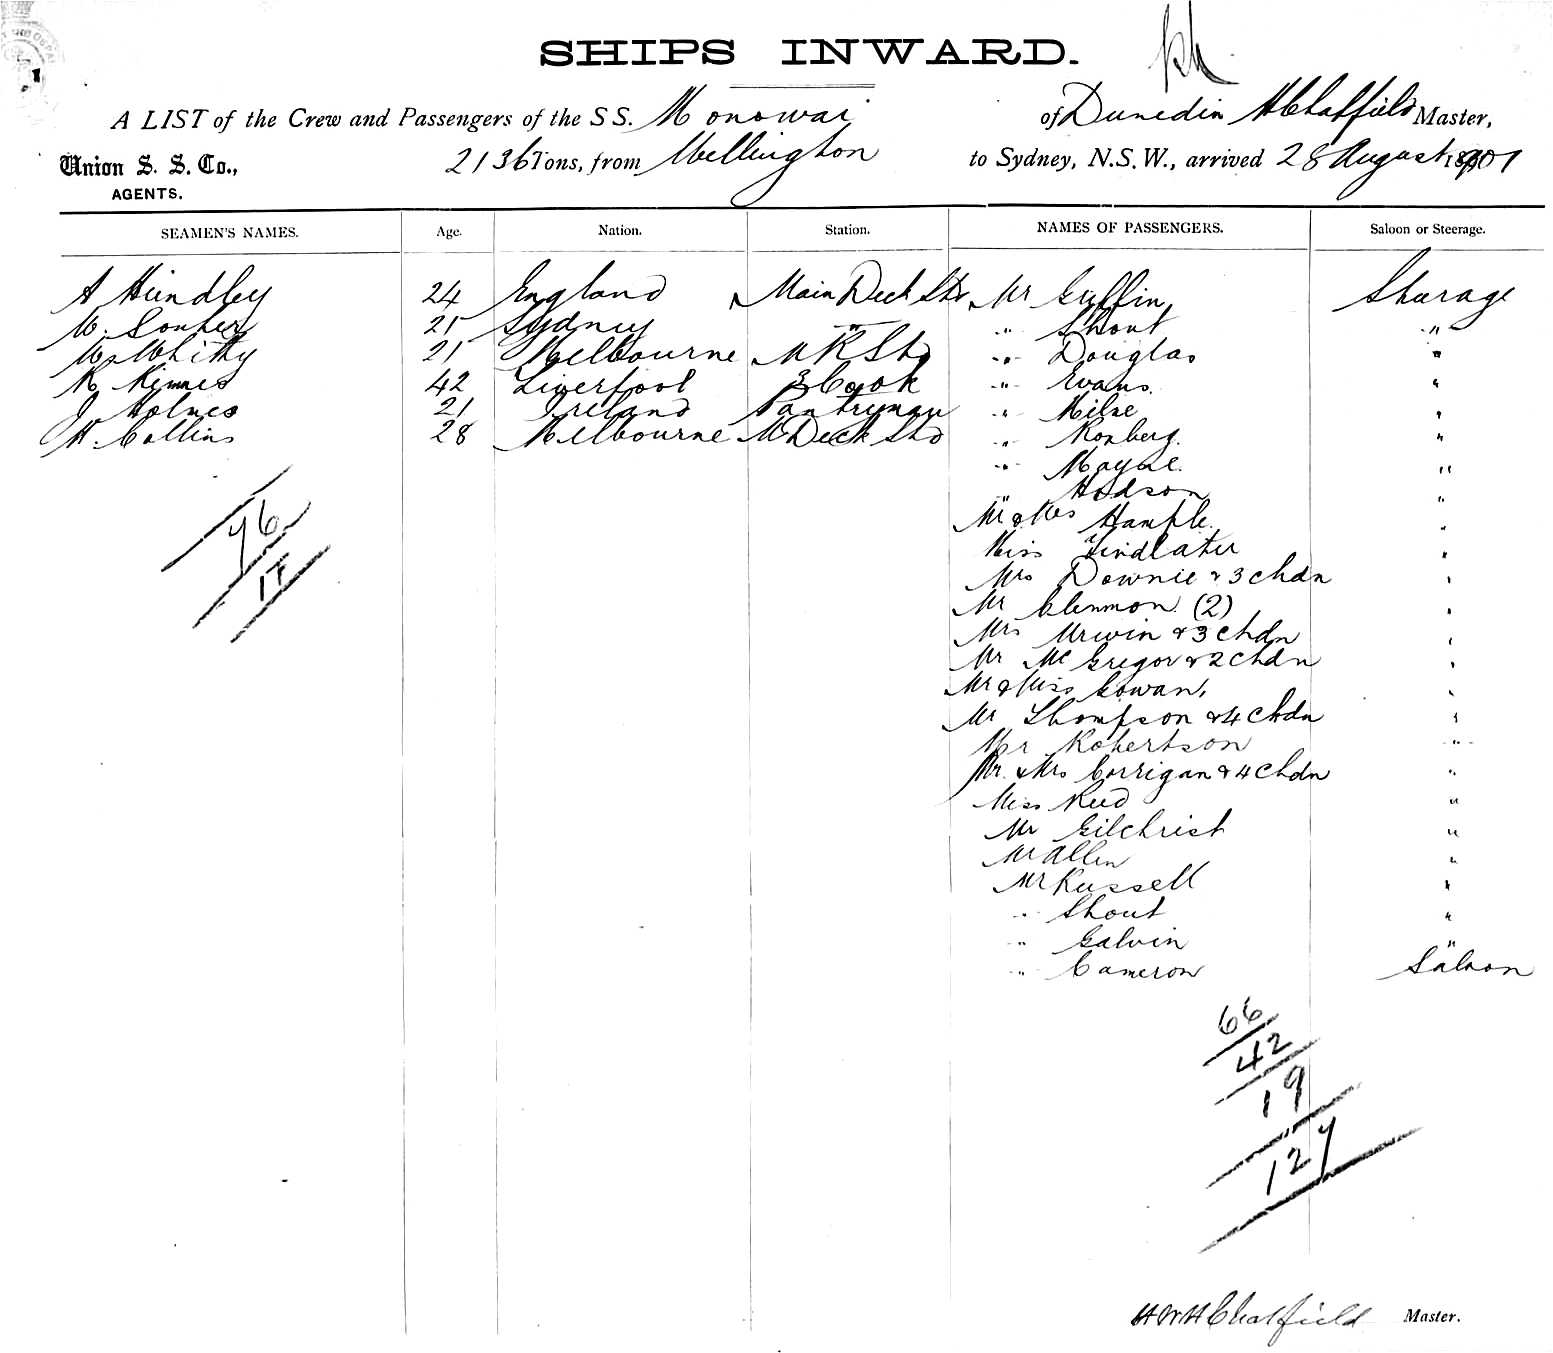 SHIPS INWARD.
A LIST of the Crew and Passengers of the S S. Monowai of Dunedin Chatfield Master,
Union S. S. Co., 2136 Tons, from Wellington to Sydney, N.S.W., arrived 28 August 1901
AGENTS.
SEAMEN'S NAMES. Age. Nation. Station. NAMES OF PASSENGERS. Saloon or Steerage.
A Hindley 24 England Main Deck Std Mr Griffin Sturage
21 Sydney " " Shout "
W. Whitty 21 Melbourne M R Std " Douglas "
42 Liverpool 3 Cook " Evans. "
J Holmes 21 Ireland Pantryman " Milne "
W. Collins 28 Melbourne M Deck Std " Ronberg. "
" Mayne. "
" Hodson "
Mr & Mrs Hample. "
Miss Findlater "
Mrs Downie & 3 chdn "
Mr Clenmon (2) "
Mrs Urwin & 3 chdn "
Mr McGregor & 2 chdn "
Mr & Miss Gowan, "
Mr Thompson & 4 chdn "
Mr Robertson "
Mr. & Mrs Corrigan & 4 chdn "
Miss Reed "
Mr Gilchrist "
Mr Allen "
Mr Russell "
" Shout "
" Galvin "
" Cameron Saloon
76
17
66
42
19
127
H W H Chatfield Master.